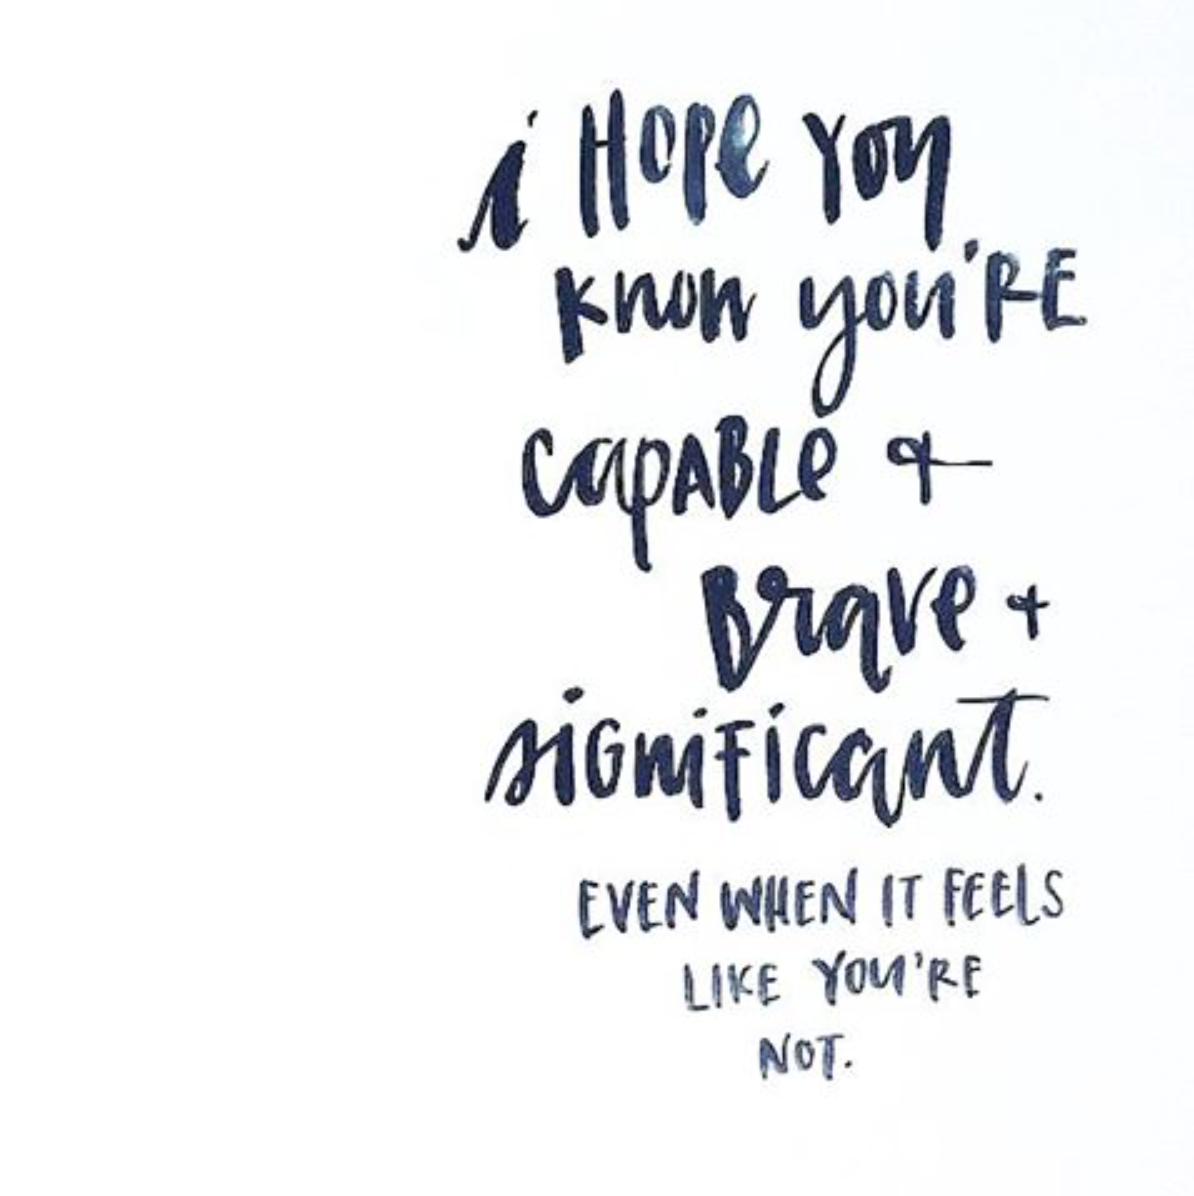 i Hope You
know you'RE
capABLe +
Brave +
siGnificant.
EVEN WHEN IT FEELS
LIKE YOU'RE
NOT.